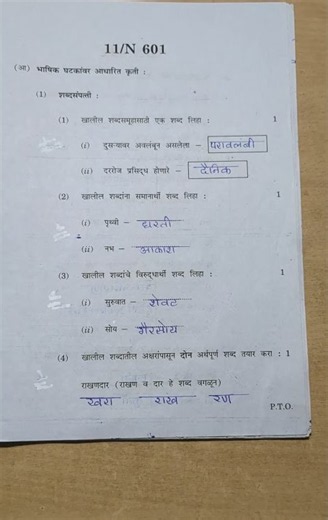 11/N 601
(आ) भाषिक घटकांवर आधारित कृती :
(1) शब्दसंपत्ती :
(1) खालील शब्दसमूहासाठी एक शब्द लिहा : 1
(i) दुसऱ्यावर अवलंबून असलेला – परावलंबी
(ii) दररोज प्रसिद्ध होणारे – दैनिक
(2) खालील शब्दांना समानार्थी शब्द लिहा : 1
(i) पृथ्वी – धरती
(ii) नभ – आकाश
(3) खालील शब्दांचे विरुद्धार्थी शब्द लिहा : 1
(i) सुरुवात – शेवट
(ii) सोय – गैरसोय
(4) खालील शब्दातील अक्षरांपासून दोन अर्थपूर्ण शब्द तयार करा : 1
राखणदार (राखण व दार हे शब्द वगळून)
खरा राख रण
P.T.O.